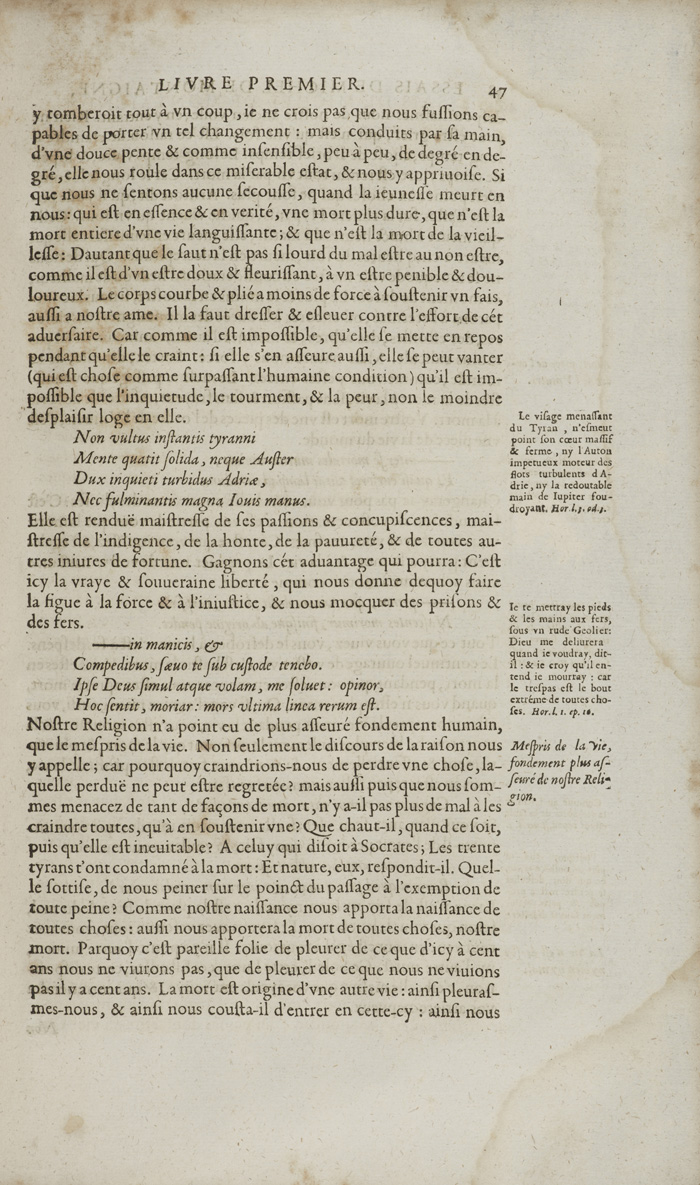 LIVRE PREMIER.
47
y tomberoit tout à vn coup, ie ne crois pas que nous fuſſions ca-
pables de porter vn tel changement : mais conduits par ſa main,
d'vne douce pente & comme inſenſible, peu à peu, de degré en de-
gré, elle nous roule dans ce miſerable eſtat, & nous y appriuoiſe. Si
que nous ne ſentons aucune ſecouſſe, quand la ieuneſſe meurt en
nous: qui eſt en eſſence & en verité, vne mort plus dure, que n'eſt la
mort entiere d'vne vie languiſſante; & que n'eſt la mort de la vieil-
leſſe: Dautant que le ſaut n'eſt pas ſi lourd du mal eſtre au non eſtre,
comme il eſt d'vn eſtre doux & fleuriſſant, à vn eſtre penible & dou-
loureux. Le corps courbe & plié a moins de force à ſouſtenir vn fais,
auſſi a noſtre ame. Il la faut dreſſer & eſleuer contre l'effort de cét
aduerſaire. Car comme il eſt impoſſible, qu'elle ſe mette en repos
pendant qu'elle le craint: ſi elle s'en aſſeure auſſi, elle ſe peut vanter
(qui eſt choſe comme ſurpaſſant l'humaine condition) qu'il eſt im-
poſſible que l'inquietude, le tourment, & la peur, non le moindre
deſplaiſir loge en elle.
Non vultus inſtantis tyranni
Mente quatit ſolida, neque Auſter
Dux inquieti turbidus Adriæ,
Nec fulminantis magna Iouis manus.
Le viſage menaſſant
du Tyran, n'eſmeut
point ſon cœur maſſif
& ferme, ny l'Auton
impetueux moteur des
flots turbulents d'A-
drie, ny la redoutable
main de Iupiter fou-
droyant. Hor. l. 3. od. 3.
Elle eſt renduë maiſtreſſe de ſes paſſions & concupiſcences, mai-
ſtreſſe de l'indigence, de la honte, de la pauureté, & de toutes au-
tres iniures de fortune. Gagnons cét aduantage qui pourra: C'eſt
icy la vraye & ſouueraine liberté, qui nous donne dequoy faire
la figue à la force & à l'iniuſtice, & nous mocquer des priſons &
des fers.
——in manicis, &
Compedibus, ſæuo te ſub cuſtode tenebo.
Ipſe Deus ſimul atque volam, me ſoluet: opinor,
Hoc ſentit, moriar: mors vltima linea rerum eſt.
Ie te mettray les pieds
& les mains aux fers,
ſous vn rude Geolier:
Dieu me deliurera
quand ie voudray, dit-
il: & ie croy qu'il en-
tend ie mourray: car
le treſpas eſt le bout
extréme de toutes cho-
ſes. Hor. l. 1. ep. 16.
Noſtre Religion n'a point eu de plus aſſeuré fondement humain,
que le meſpris de la vie. Non ſeulement le diſcours de la raiſon nous
y appelle; car pourquoy craindrions-nous de perdre vne choſe, la-
quelle perduë ne peut eſtre regretée? mais auſſi puis que nous ſom-
mes menacez de tant de façons de mort, n'y a-il pas plus de mal à les
craindre toutes, qu'à en ſouſtenir vne? Que chaut-il, quand ce ſoit,
puis qu'elle eſt ineuitable? A celuy qui diſoit à Socrates; Les trente
tyrans t'ont condamné à la mort: Et nature, eux, reſpondit-il. Quel-
le ſottiſe, de nous peiner ſur le poinct du paſſage à l'exemption de
toute peine? Comme noſtre naiſſance nous apporta la naiſſance de
toutes choſes: auſſi nous apportera la mort de toutes choſes, noſtre
mort. Parquoy c'eſt pareille folie de pleurer de ce que d'icy à cent
ans nous ne viurons pas, que de pleurer de ce que nous ne viuions
pas il y a cent ans. La mort eſt origine d'vne autre vie: ainſi pleuraſ-
mes-nous, & ainſi nous couſta-il d'entrer en cette-cy : ainſi nous
Meſpris de la vie,
fondement plus aſ-
ſeuré de noſtre Reli-
gion.